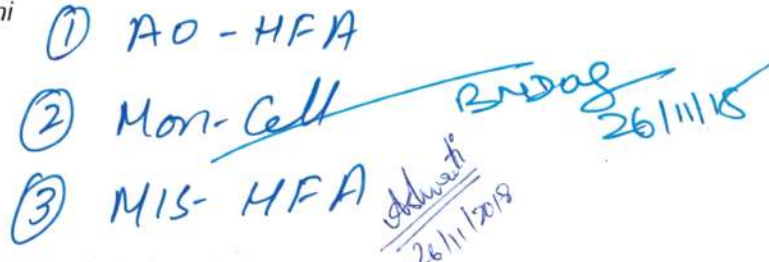 ① AO - HFA
② Mon- Cell
26/11/18
③ MIS- HFA
Ashwati
26/11/2018